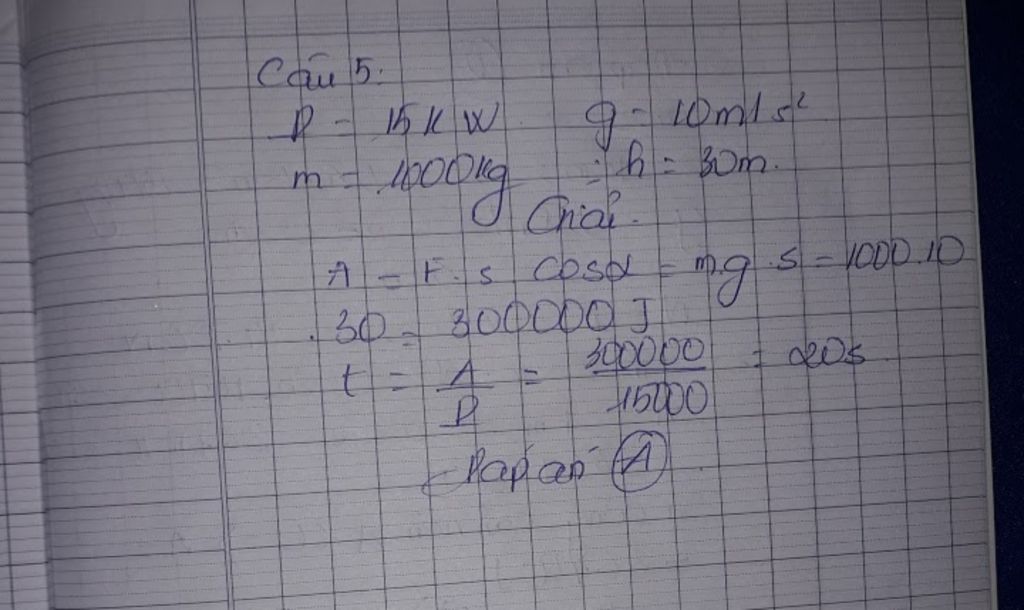 Câu 5.
P = 15 KW g = 10m/s²
m = 1000kg h = 30m.
Giải.
A = F.s cosα = mg.s = 1000.10
.30 = 300000 J
t = A/P = 300000/15000 = 20s
Đáp án A